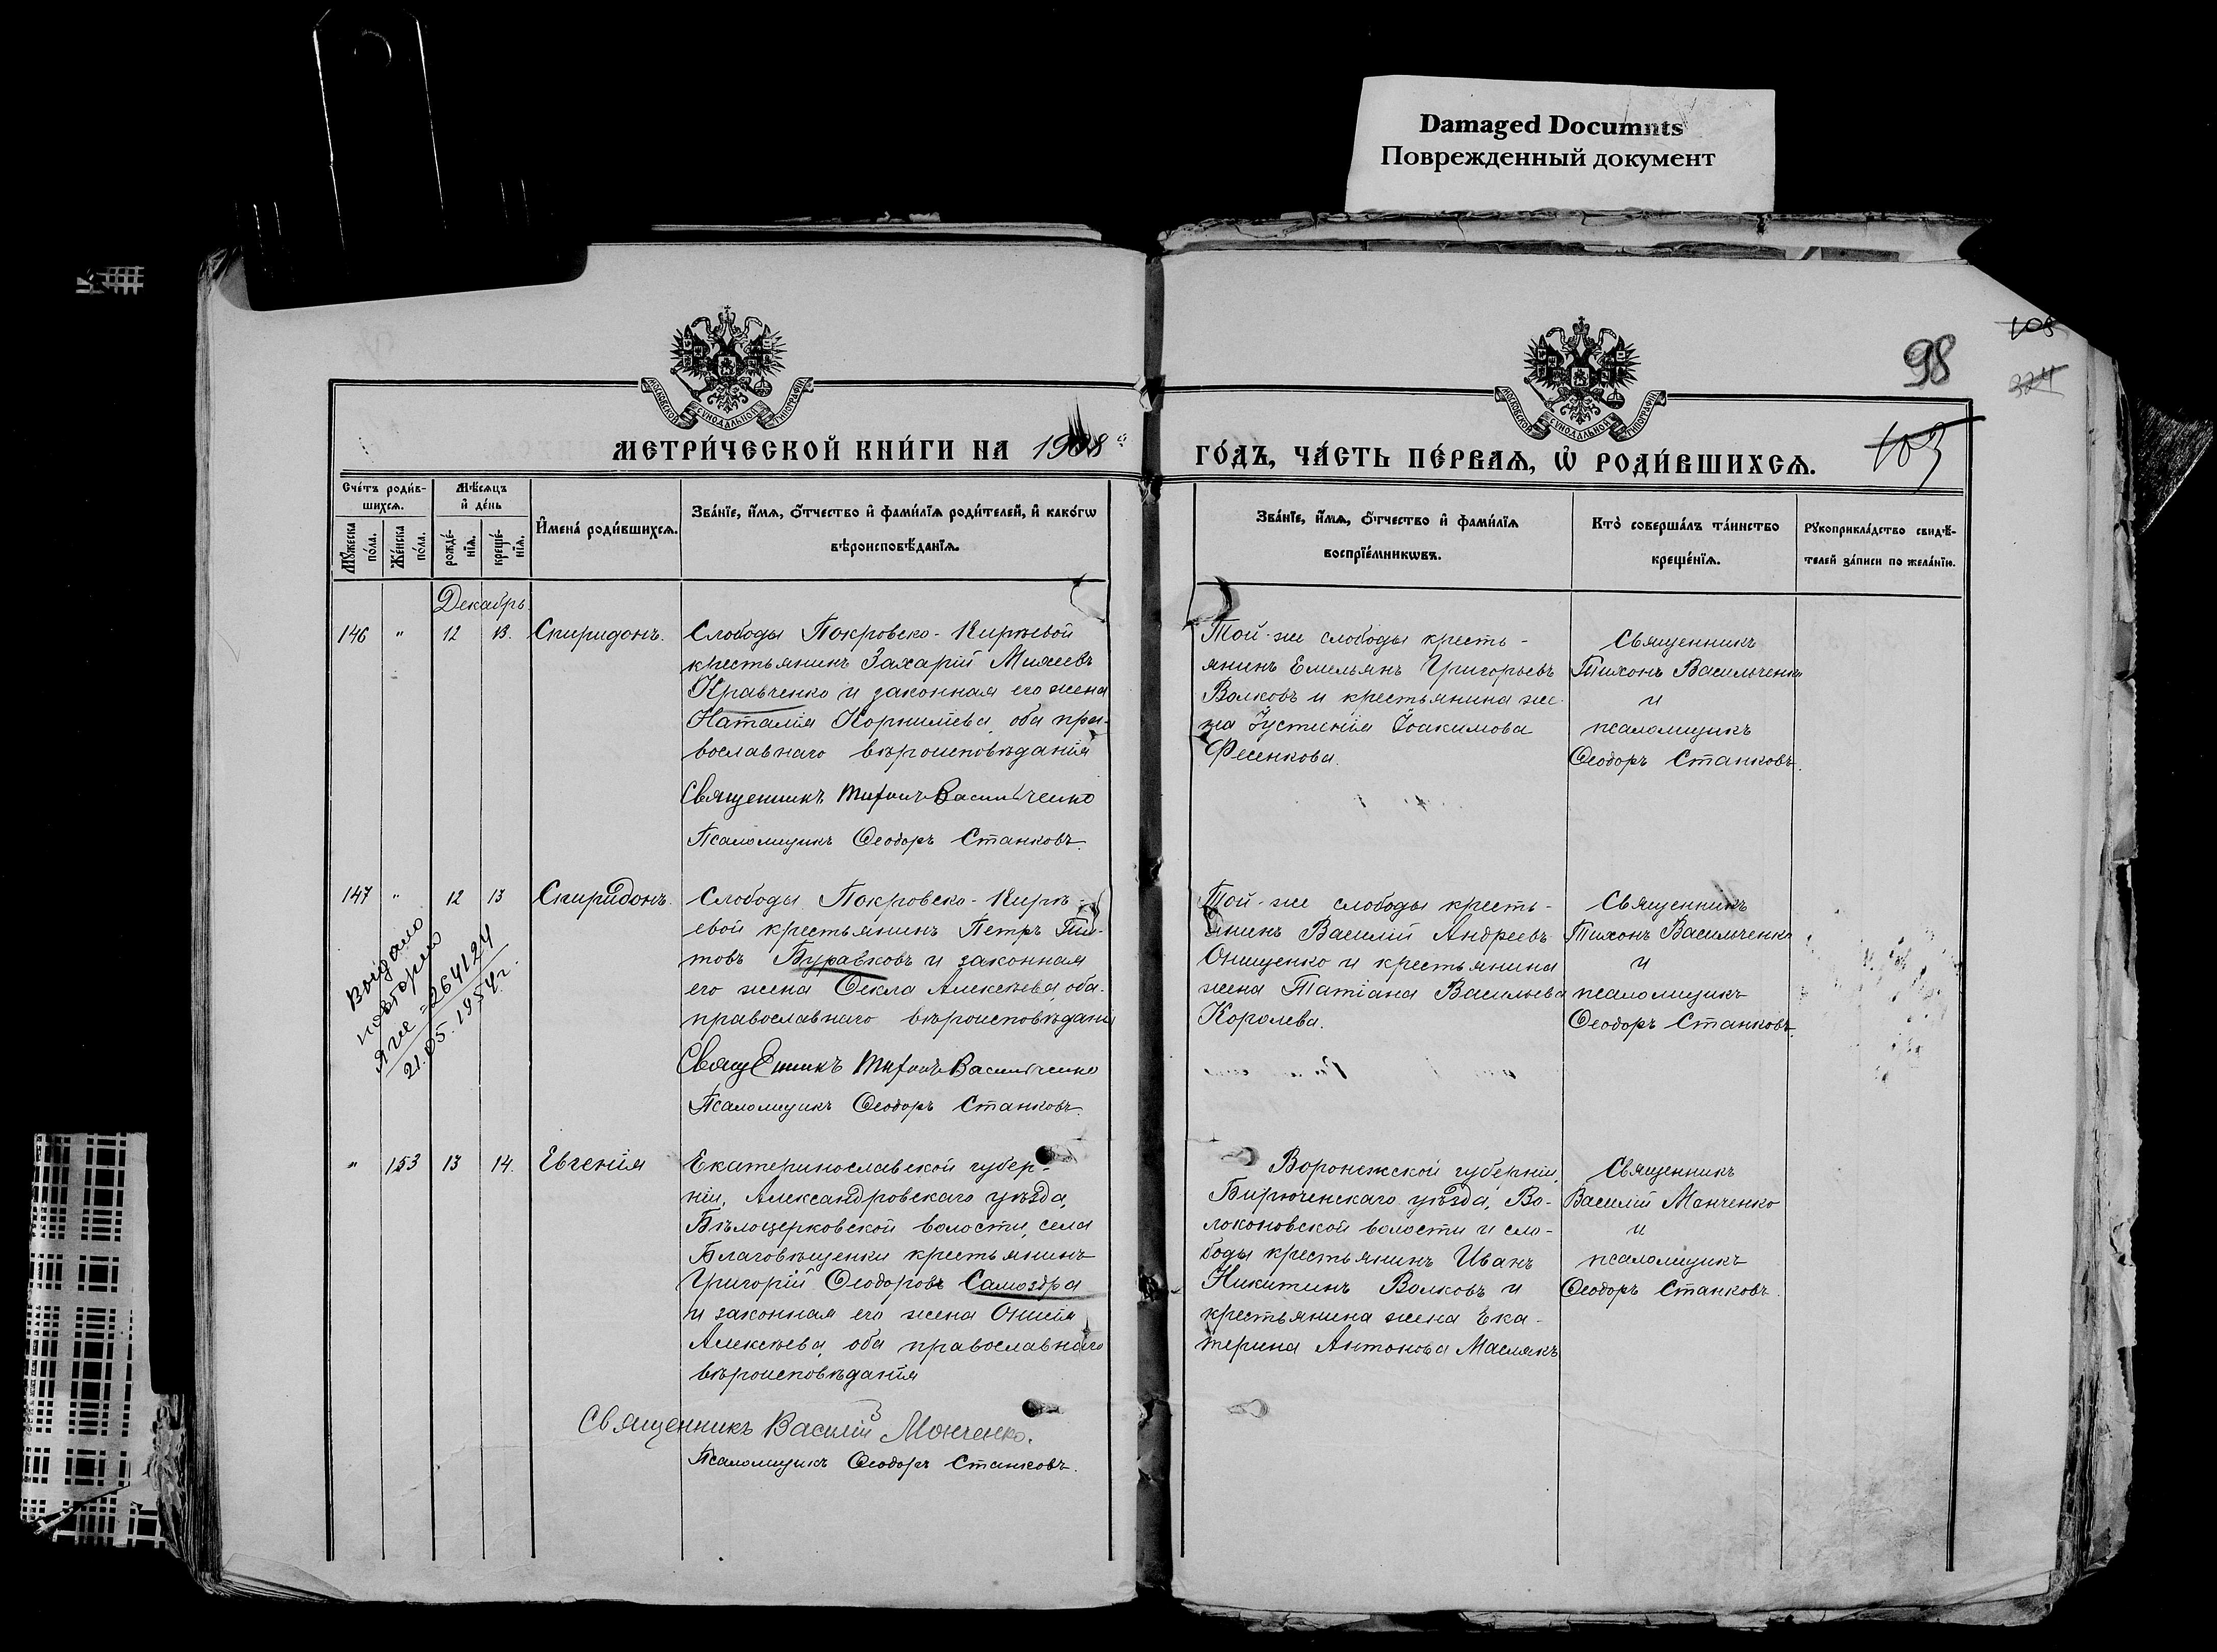 Damaged Documnts
Поврежденный документ
98
108
324
103
МОСКОВСКОЙ СѴНОДАЛЬНОЙ ТИПОГРАФІИ
МОСКОВСКОЙ СѴНОДАЛЬНОЙ ТИПОГРАФІИ
МЕТРИ́ЧЕСКОЙ КНИ́ГИ НА 1908
ГО́ДЪ, ЧА́СТЬ ПЕ́РВАѦ, Ѡ҆ РОДИ́ВШИХСѦ.
Сче́тъ роди́в-
шихсѧ.
Мꙋ́жеска по́ла.
Же́нска по́ла.
Мѣ́сѧцъ
и҆ де́нь
рожде́-
нїѧ.
креще́-
нїѧ.
И҆мена̀ роди́вшихсѧ.
Зва́нїе, и҆́мѧ, ѻ҆́тчество и҆ фами́лїѧ роди́телей, и҆ како́гѡ
вѣроисповѣ́данїѧ.
Зва́нїе, и҆́мѧ, ѻ҆́тчество и҆ фами́лїѧ
воспрїе́мникѡвъ.
Кто̀ соверша́лъ та́инство
креще́нїѧ.
Рꙋкоприкла́дство свидѣ́-
телей за́писи по жела́нїю.
Декабрь.
146 " 12 13. Спиридонъ.
Слободы Покровско-Кирѣевой
крестьянинъ Захарій Михеевъ
Кравченко и законная его жена
Наталія Корнилíева, оба пра-
вославнаго вѣроисповѣданія
Священникъ Тихонъ Васильченко
Псаломщикъ Ѳеодоръ Станковъ.
Той-же слободы кресть-
янинъ Емельянъ Григорьевъ
Волковъ и крестьянина же-
на Іустинія Іоакимова
Фесенкова.
Священникъ
Тихонъ Васильченко
и
псаломщикъ
Ѳеодоръ Станковъ.
147 " 12 13 Спиридонъ.
Слободы Покровско-Кирѣ-
евой крестьянинъ Петръ Ти-
товъ Буравковъ и законная
его жена Ѳекла Алексѣева, оба
православнаго вѣроисповѣданія
Священникъ Тихонъ Васильченко
Псаломщикъ Ѳеодоръ Станковъ.
Той-же слободы кресть-
янинъ Василій Андреевъ
Онищенко и крестьянина
жена Татіана Васильева
Королева.
Священникъ
Тихонъ Васильченко
и
псаломщикъ
Ѳеодоръ Станковъ.
Выдано
повторно
264124
21.05.1954г.
" 153 13 14. Евгенія
Екатеринославской губер-
ніи, Александровскаго уѣзда,
Бѣлоцерковской волости, села
Благовѣщенки крестьянинъ
Григорій Ѳеодоровъ Самоздра
и законная его жена Онисія
Алексѣева, оба православнаго
вѣроисповѣданія
Священникъ Василій Монченко.
Псаломщикъ Ѳеодоръ Станковъ.
Воронежской губерніи,
Бирюченскаго уѣзда, Во-
локоновской волости и сло-
боды крестьянинъ Иванъ
Никитинъ Волковъ и
крестьянина жена Ека-
терина Антонова Маслякъ
Священникъ
Василій Монченко
и
псаломщикъ
Ѳеодоръ Станковъ.